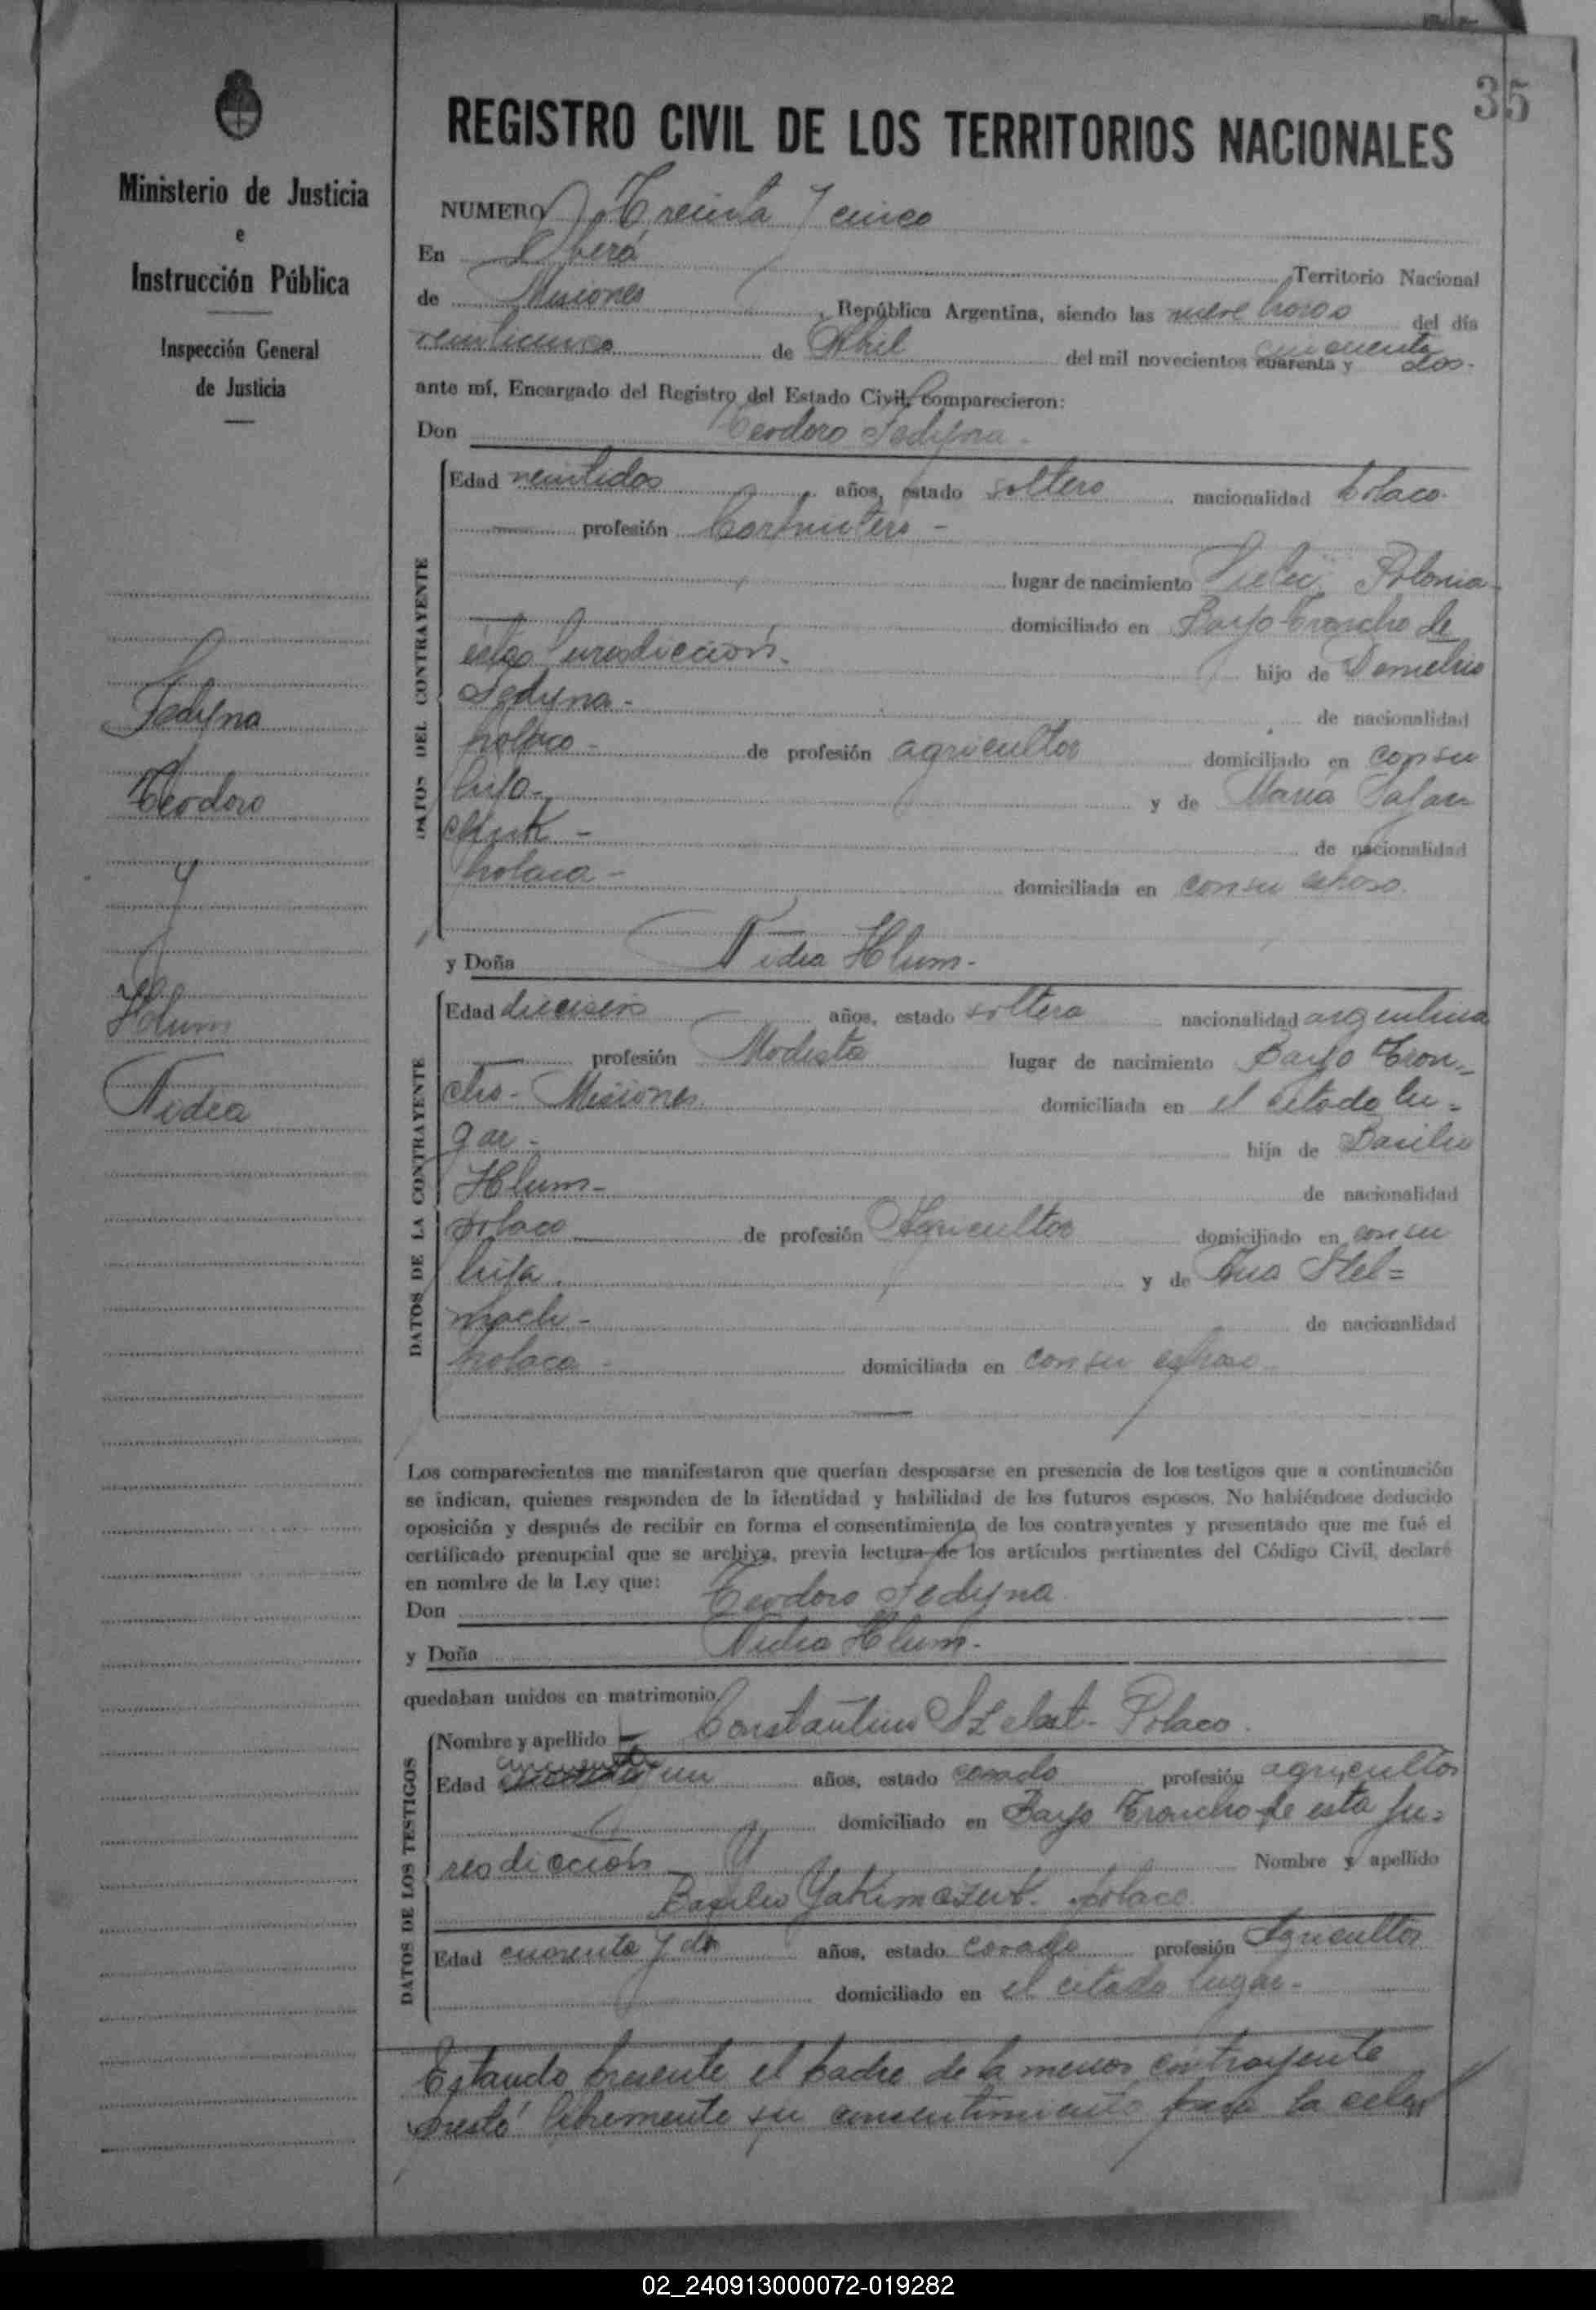 35
Ministerio de Justicia
e
Instrucción Pública
Inspección General
de Justicia
Fedyna
Teodoro
y
Hlum
Nidea
REGISTRO CIVIL DE LOS TERRITORIOS NACIONALES
NUMERO Treinta y cinco
En Oberá Territorio Nacional
de Misiones, República Argentina, siendo las nueve horas del día
veinticinco de Abril del mil novecientos cuarenta y cincuenta dos.
ante mí, Encargado del Registro del Estado Civil, comparecieron:
Don Teodoro Fedyna.
DATOS DEL CONTRAYENTE
Edad veintidos años, estado soltero nacionalidad polaco.
profesión Carpintero -
lugar de nacimiento Polonia
domiciliado en Bayo Troncho de
esta Jurisdicción. hijo de Demetrio
Fedyna - de nacionalidad
polaco - de profesión agricultor domiciliado en con su
hijo - y de María
de nacionalidad
polaca - domiciliada en con su esposo.
y Doña Nidea Hlum -
DATOS DE LA CONTRAYENTE
Edad dieciseis años, estado soltera nacionalidad argentina
profesión Modista lugar de nacimiento Bayo Tron-
cho - Misiones domiciliada en el citado lu=
gar - hija de Basilio
Hlum - de nacionalidad
polaco de profesión Agricultor domiciliado en con su
hija. y de Ana Stel=
mach - de nacionalidad
polaca - domiciliada en con su esposo
Los comparecientes me manifestaron que querían desposarse en presencia de los testigos que a continuación
se indican, quienes responden de la identidad y habilidad de los futuros esposos. No habiéndose deducido
oposición y después de recibir en forma el consentimiento de los contrayentes y presentado que me fué el
certificado prenupcial que se archiva, previa lectura de los artículos pertinentes del Código Civil, declaré
en nombre de la Ley que:
Don Teodoro Fedyna
y Doña Nidea Hlum -
quedaban unidos en matrimonio
DATOS DE LOS TESTIGOS
Nombre y apellido Constantino - Polaco.
Edad cincuenta un años, estado casado profesión agricultor
domiciliado en Bayo Troncho de esta Ju=
risdicción Nombre y apellido
Basilio Yakimczuk. polaco
Edad cuarenta y dos años, estado casado profesión Agricultor
domiciliado en el citado lugar -
Estando presente el padre de la menor contrayente
prestó libremente su consentimiento para la
02_240913000072-019282